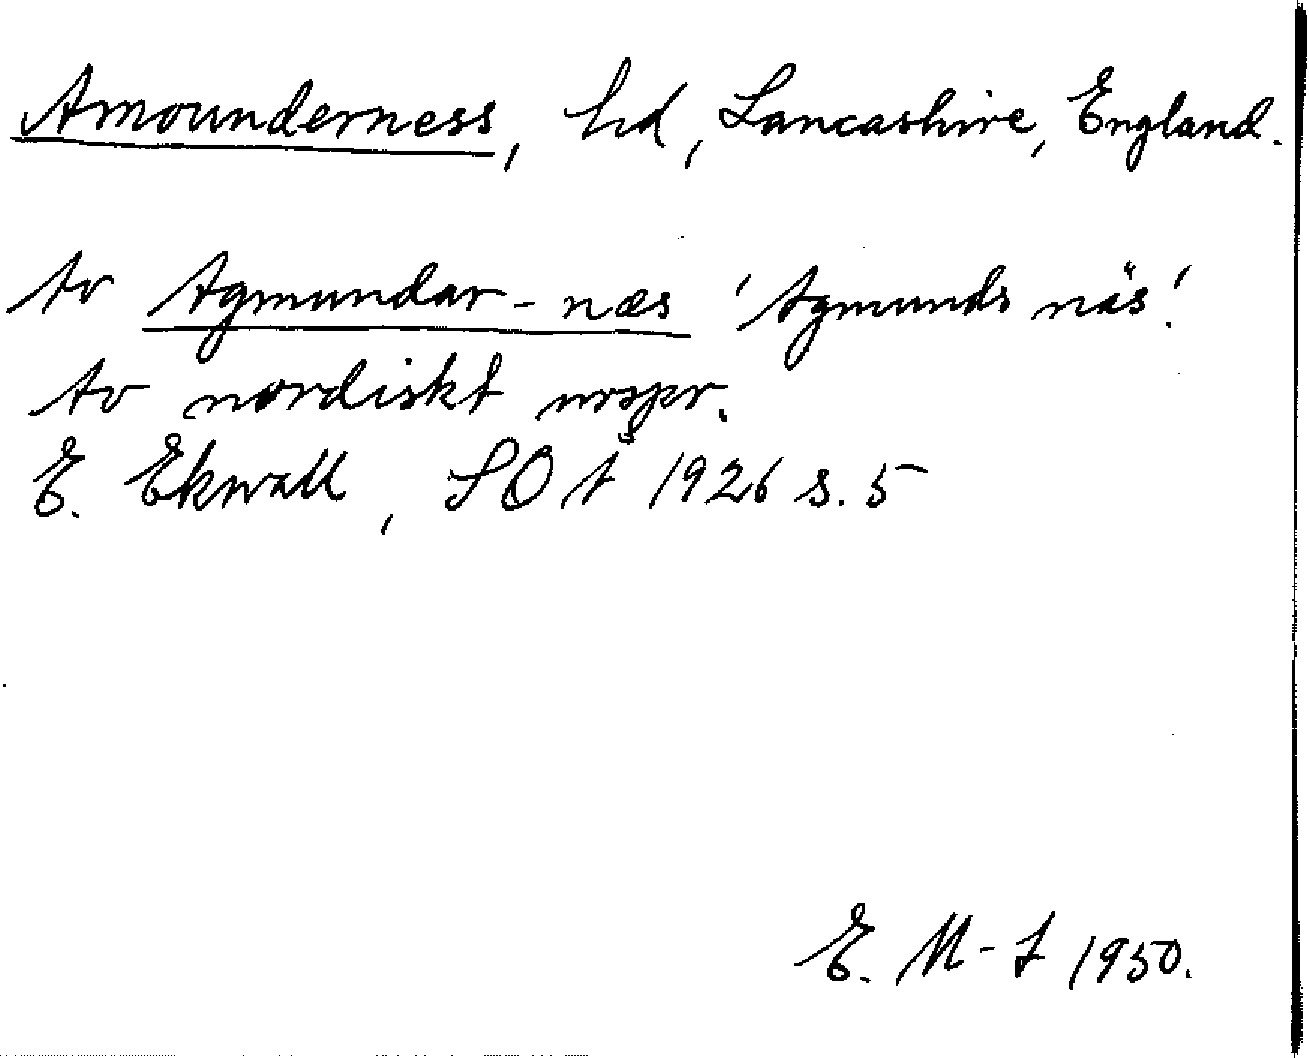 Amounderness, hd, Lancashire, England.
Av Agmundar-næs 'Agmunds näs'.
Av nordiskt urspr.
E. Ekwall, SOÅ 1926 s. 5
E. M-J 1950.